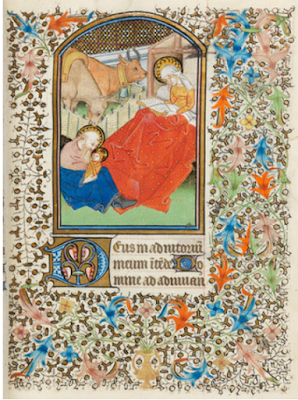 DEus in adiutoriū
meum ītēde Do
mine ad adiuuan